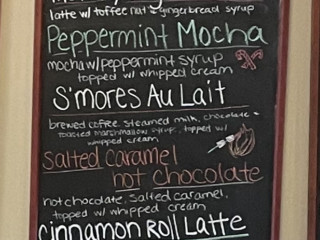 latte w/ toffee nut & gingerbread syrup
Peppermint Mocha
mocha w/peppermint syrup
topped w/ whipped cream
S'mores Au Lait
brewed coffee, steamed milk, chocolate &
toasted marshmallow syrup, topped w/
whipped cream
Salted caramel
hot chocolate
hot chocolate, salted caramel,
topped w/ whipped cream
Cinnamon Roll Latte